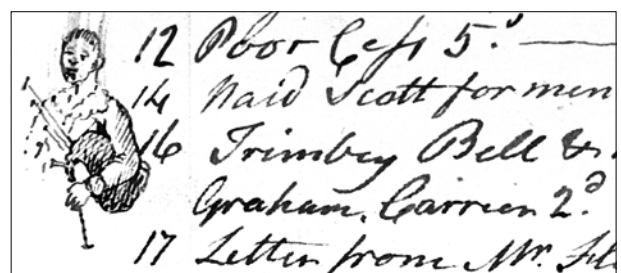 12 Poor Cess 5.s
14 Paid Scott for men
16 Trimbey Bell &
Graham. Carrier 2.d
17 Letter from Mr.